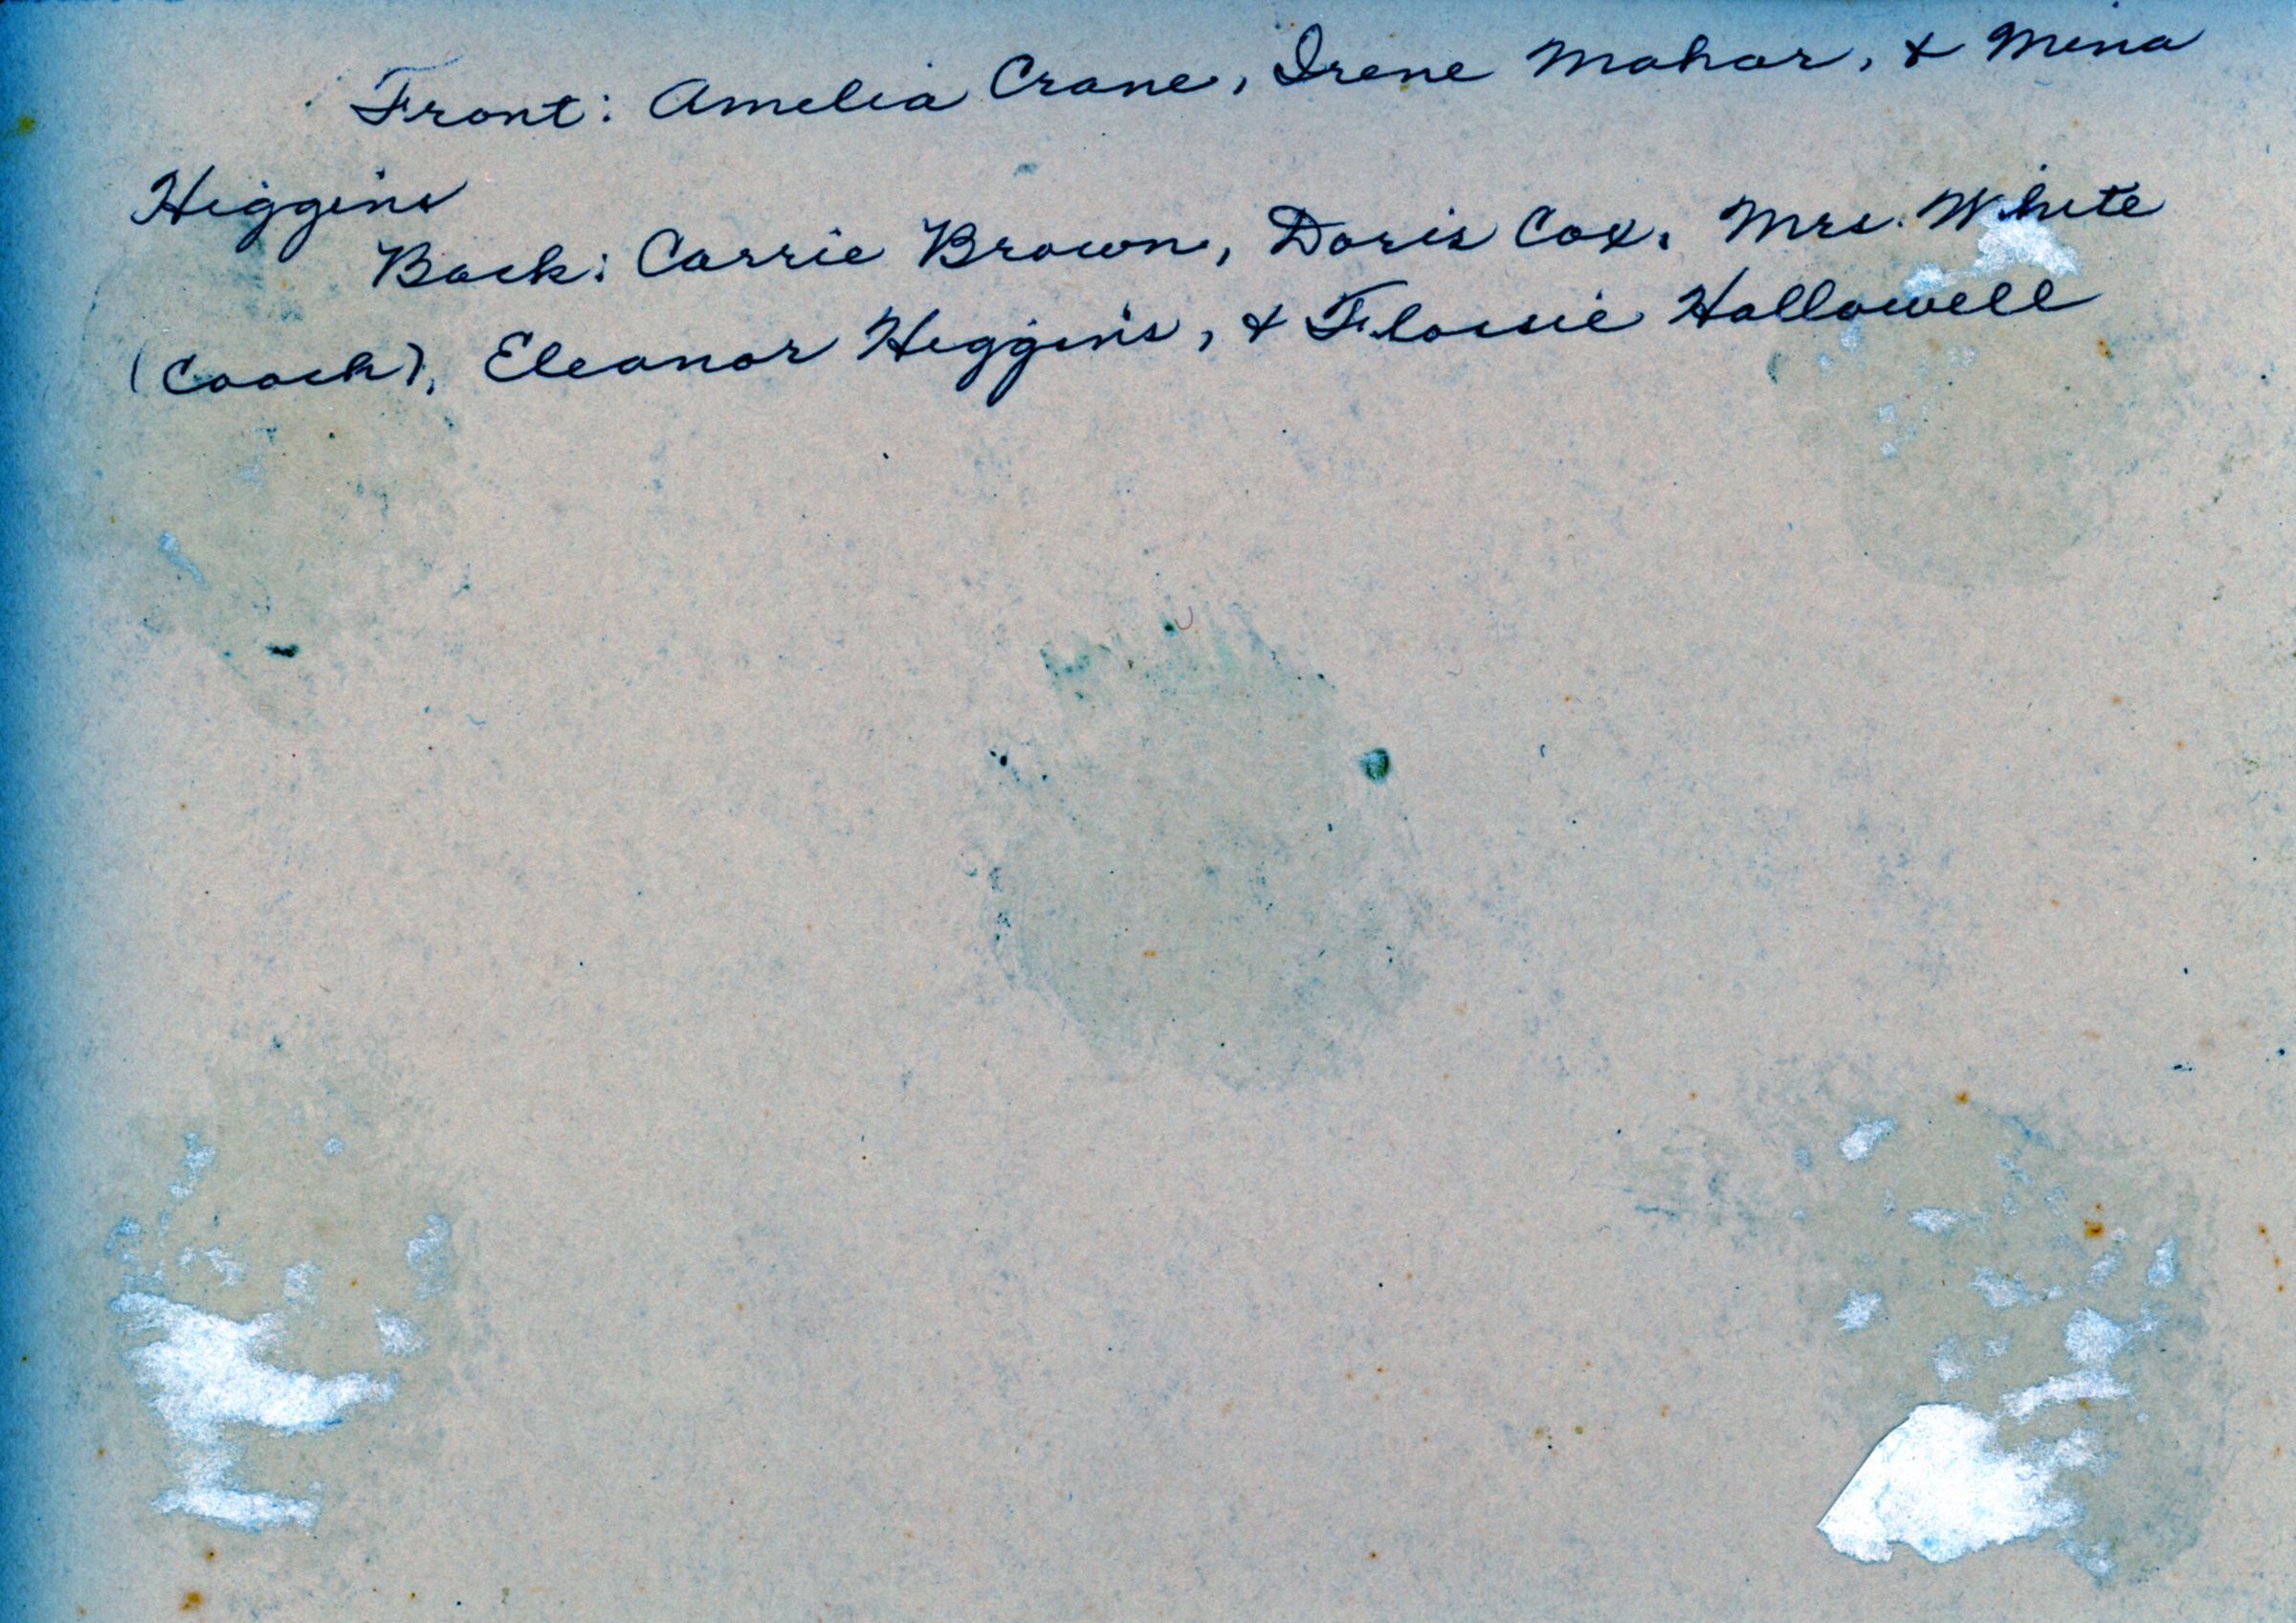 Front: Amelia Crane, Irene Mahar, & Mina
Higgins
Back: Carrie Brown, Doris Cox, Mrs. White
(Coach), Eleanor Higgins, & Flossie Hallowell